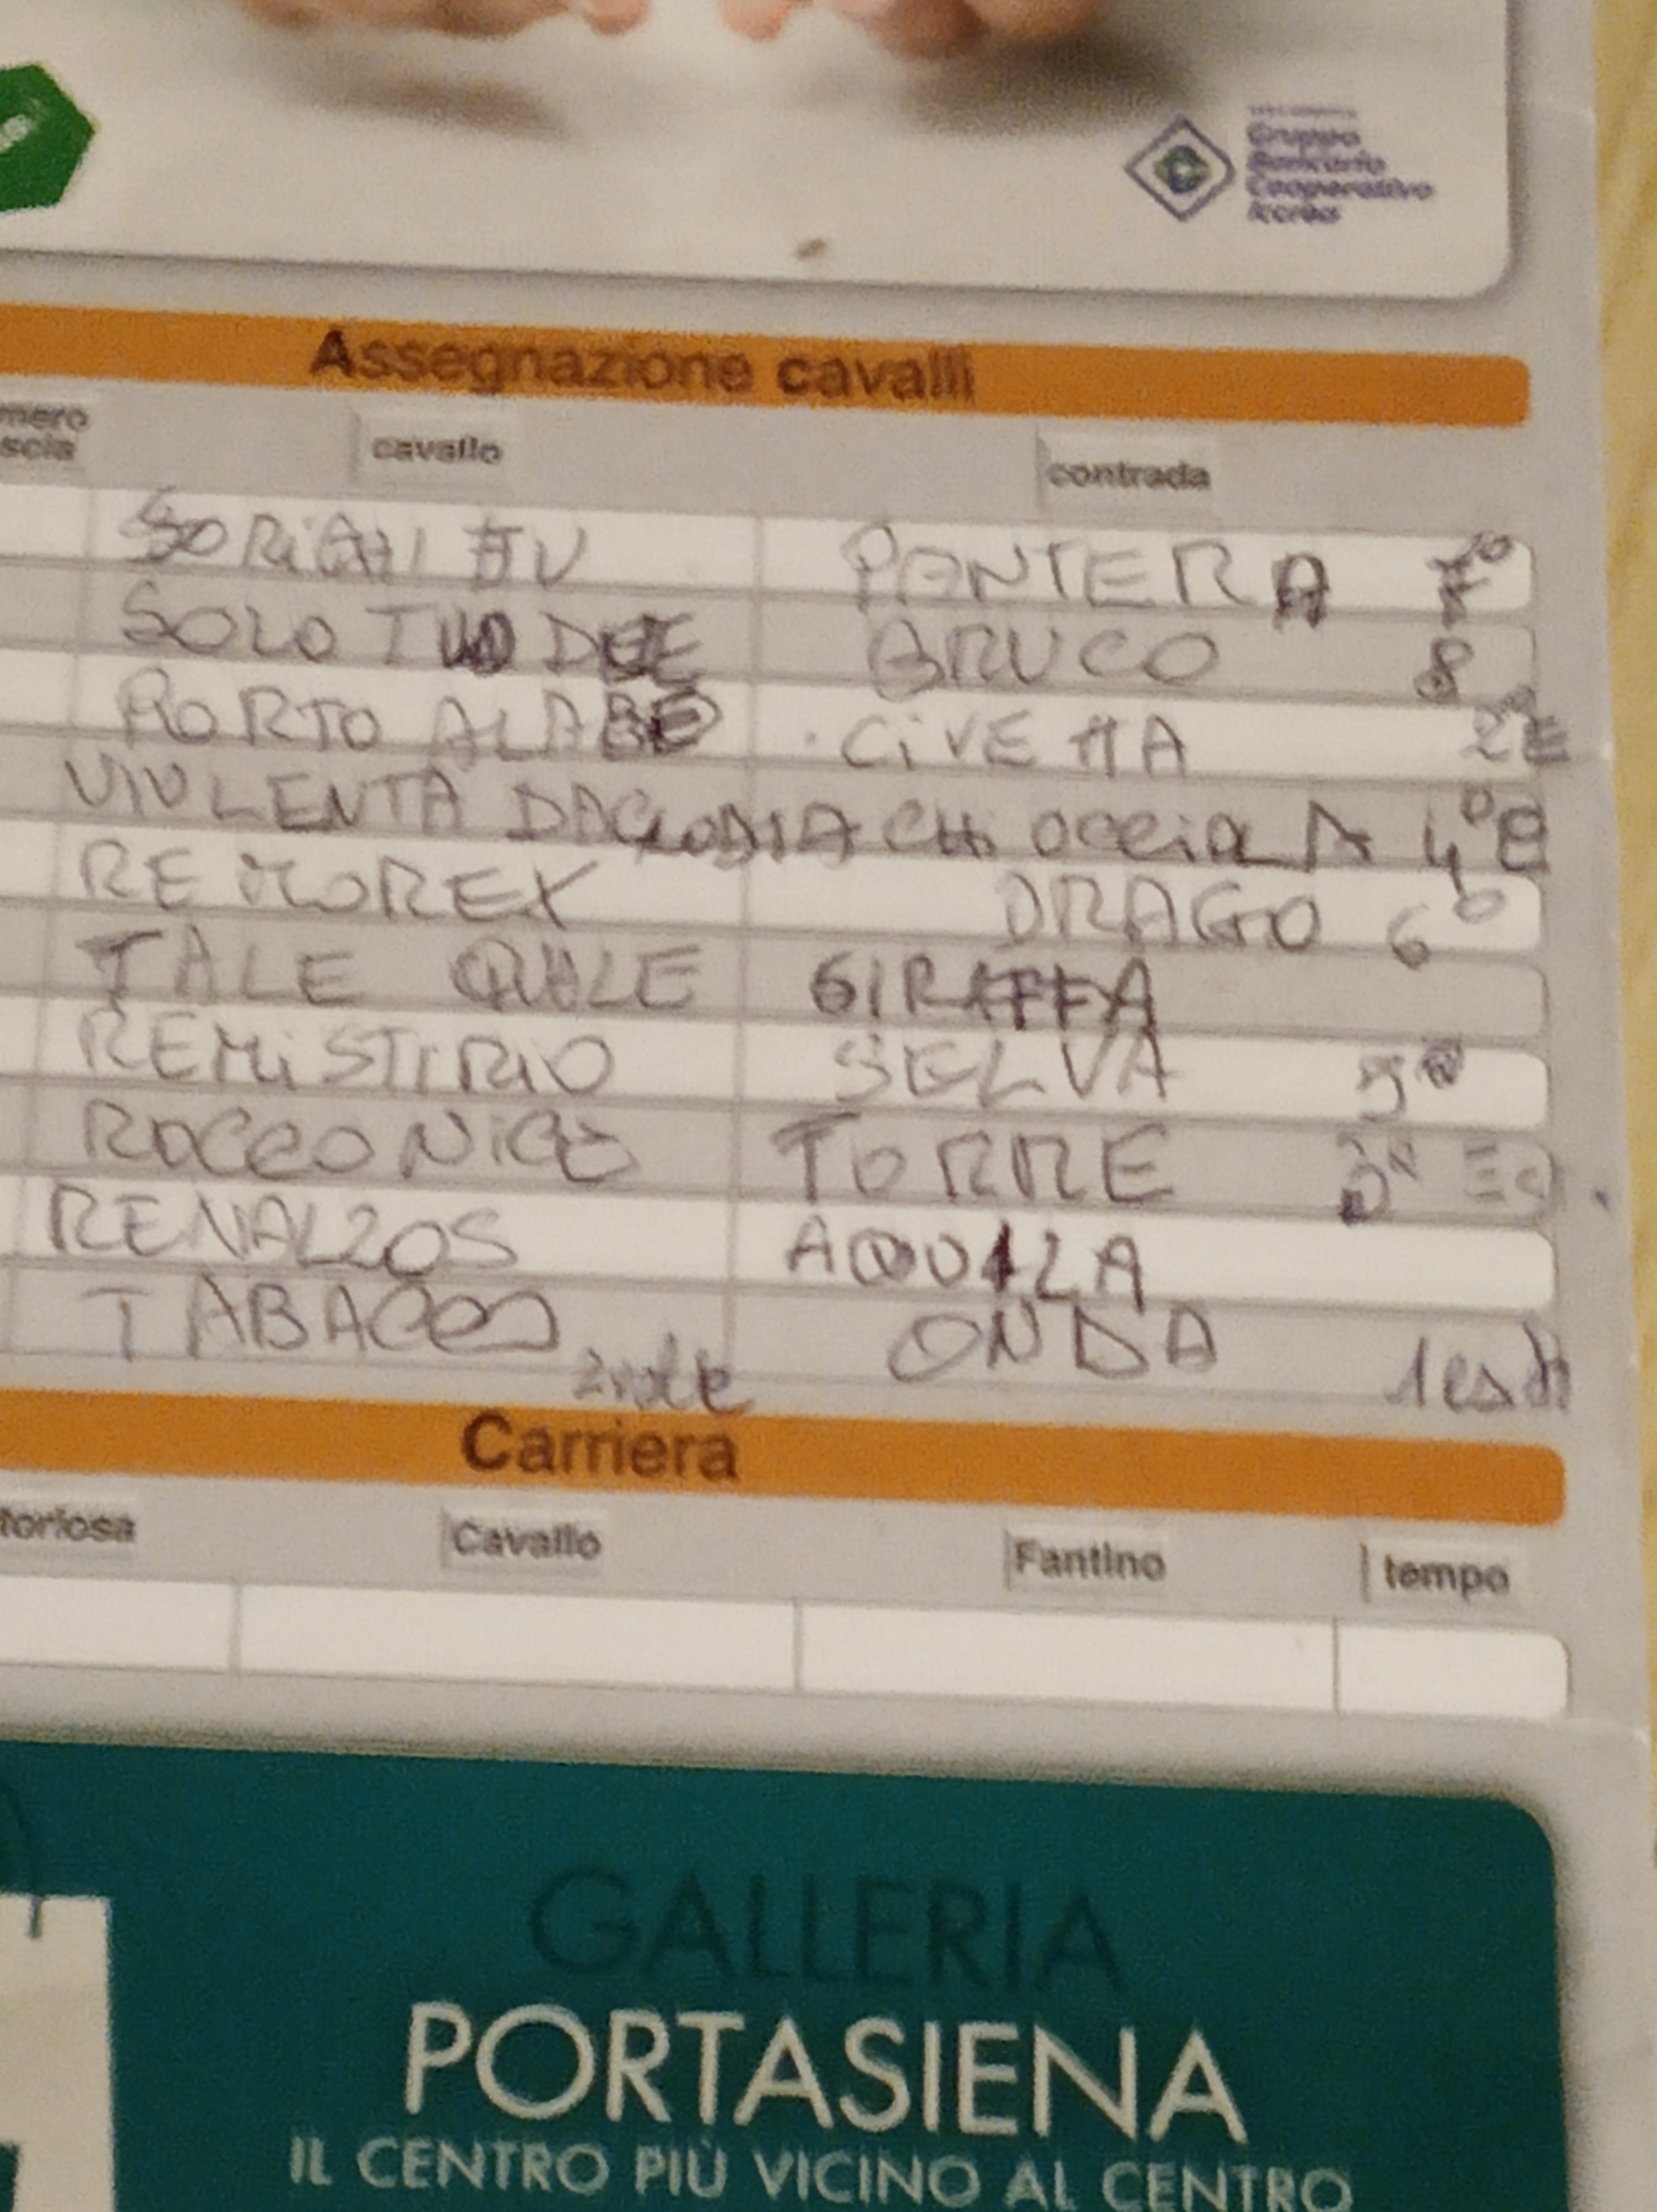 Gruppo
Bancario
Cooperativo
Iccrea
Assegnazione cavalli
mero
scia
cavallo
contrada
PANTERA 7º
SOLO TUO DUE BRUCO 8
PORTO ALABE CIVETTA 2º E
VIOLENTA DACLODIA CHIOCCIOLA 4º E
REMOREX DRAGO 6º
TALE QUALE GIRAFFA
REMISTIRIO SELVA 5º
ROCCO NICE TORRE
RENALZOS AQUILA
TABACCO 2 volte ONDA
Carriera
toriosa
Cavallo
Fantino
tempo
GALLERIA
PORTASIENA
IL CENTRO PIÙ VICINO AL CENTRO